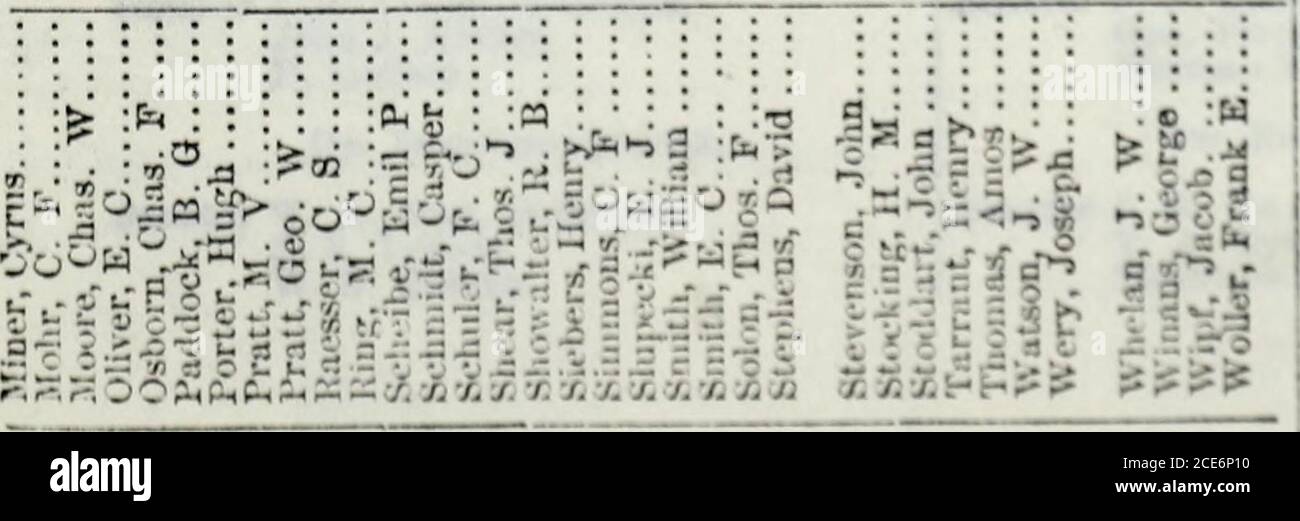 Miner, Cyrus
Mohr, C. F
Moore, Chas. W
Oliver, E. C
Osborn, Chas. F
Paddock, B. G
Porter, Hugh
Pratt, M. V
Pratt, Geo. W
Raesser, C. S
Ring, M. C
Scheibe, Emil P
Schmidt, Casper
Schuler, F. C
Shear, Thos. J
Showalter, R. B
Siebers, Henry
Simmons, C. F
Slupecki, E. J
Smith, William
Smith, E. C
Solon, Thos. F
Stephens, David
Stevenson, John
Stocking, H. M
Stoddart, John
Tarrant, Henry
Thomas, Amos
Watson, J. W
Wery, Joseph
Whelan, J. W
Winans, George
Wipf, Jacob
Woller, Frank E
alamy
Image ID: 2CE6P10
www.alamy.com